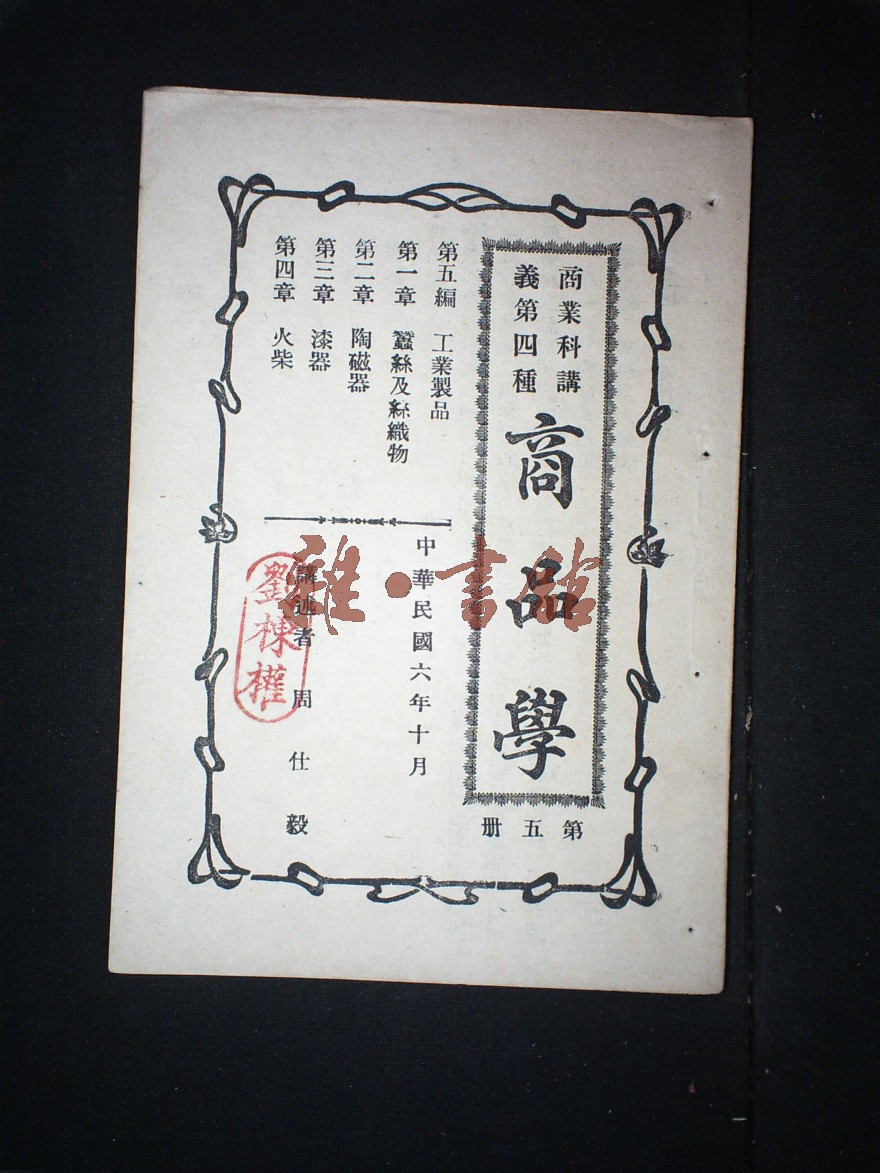 商業科講
義第四種
商品學
第五册
第五編 工業製品
第一章 蠶絲及絲織物
第二章 陶磁器
第三章 漆器
第四章 火柴
中華民國六年十月
講述者 周仕毅
劉棟權
雅·書館